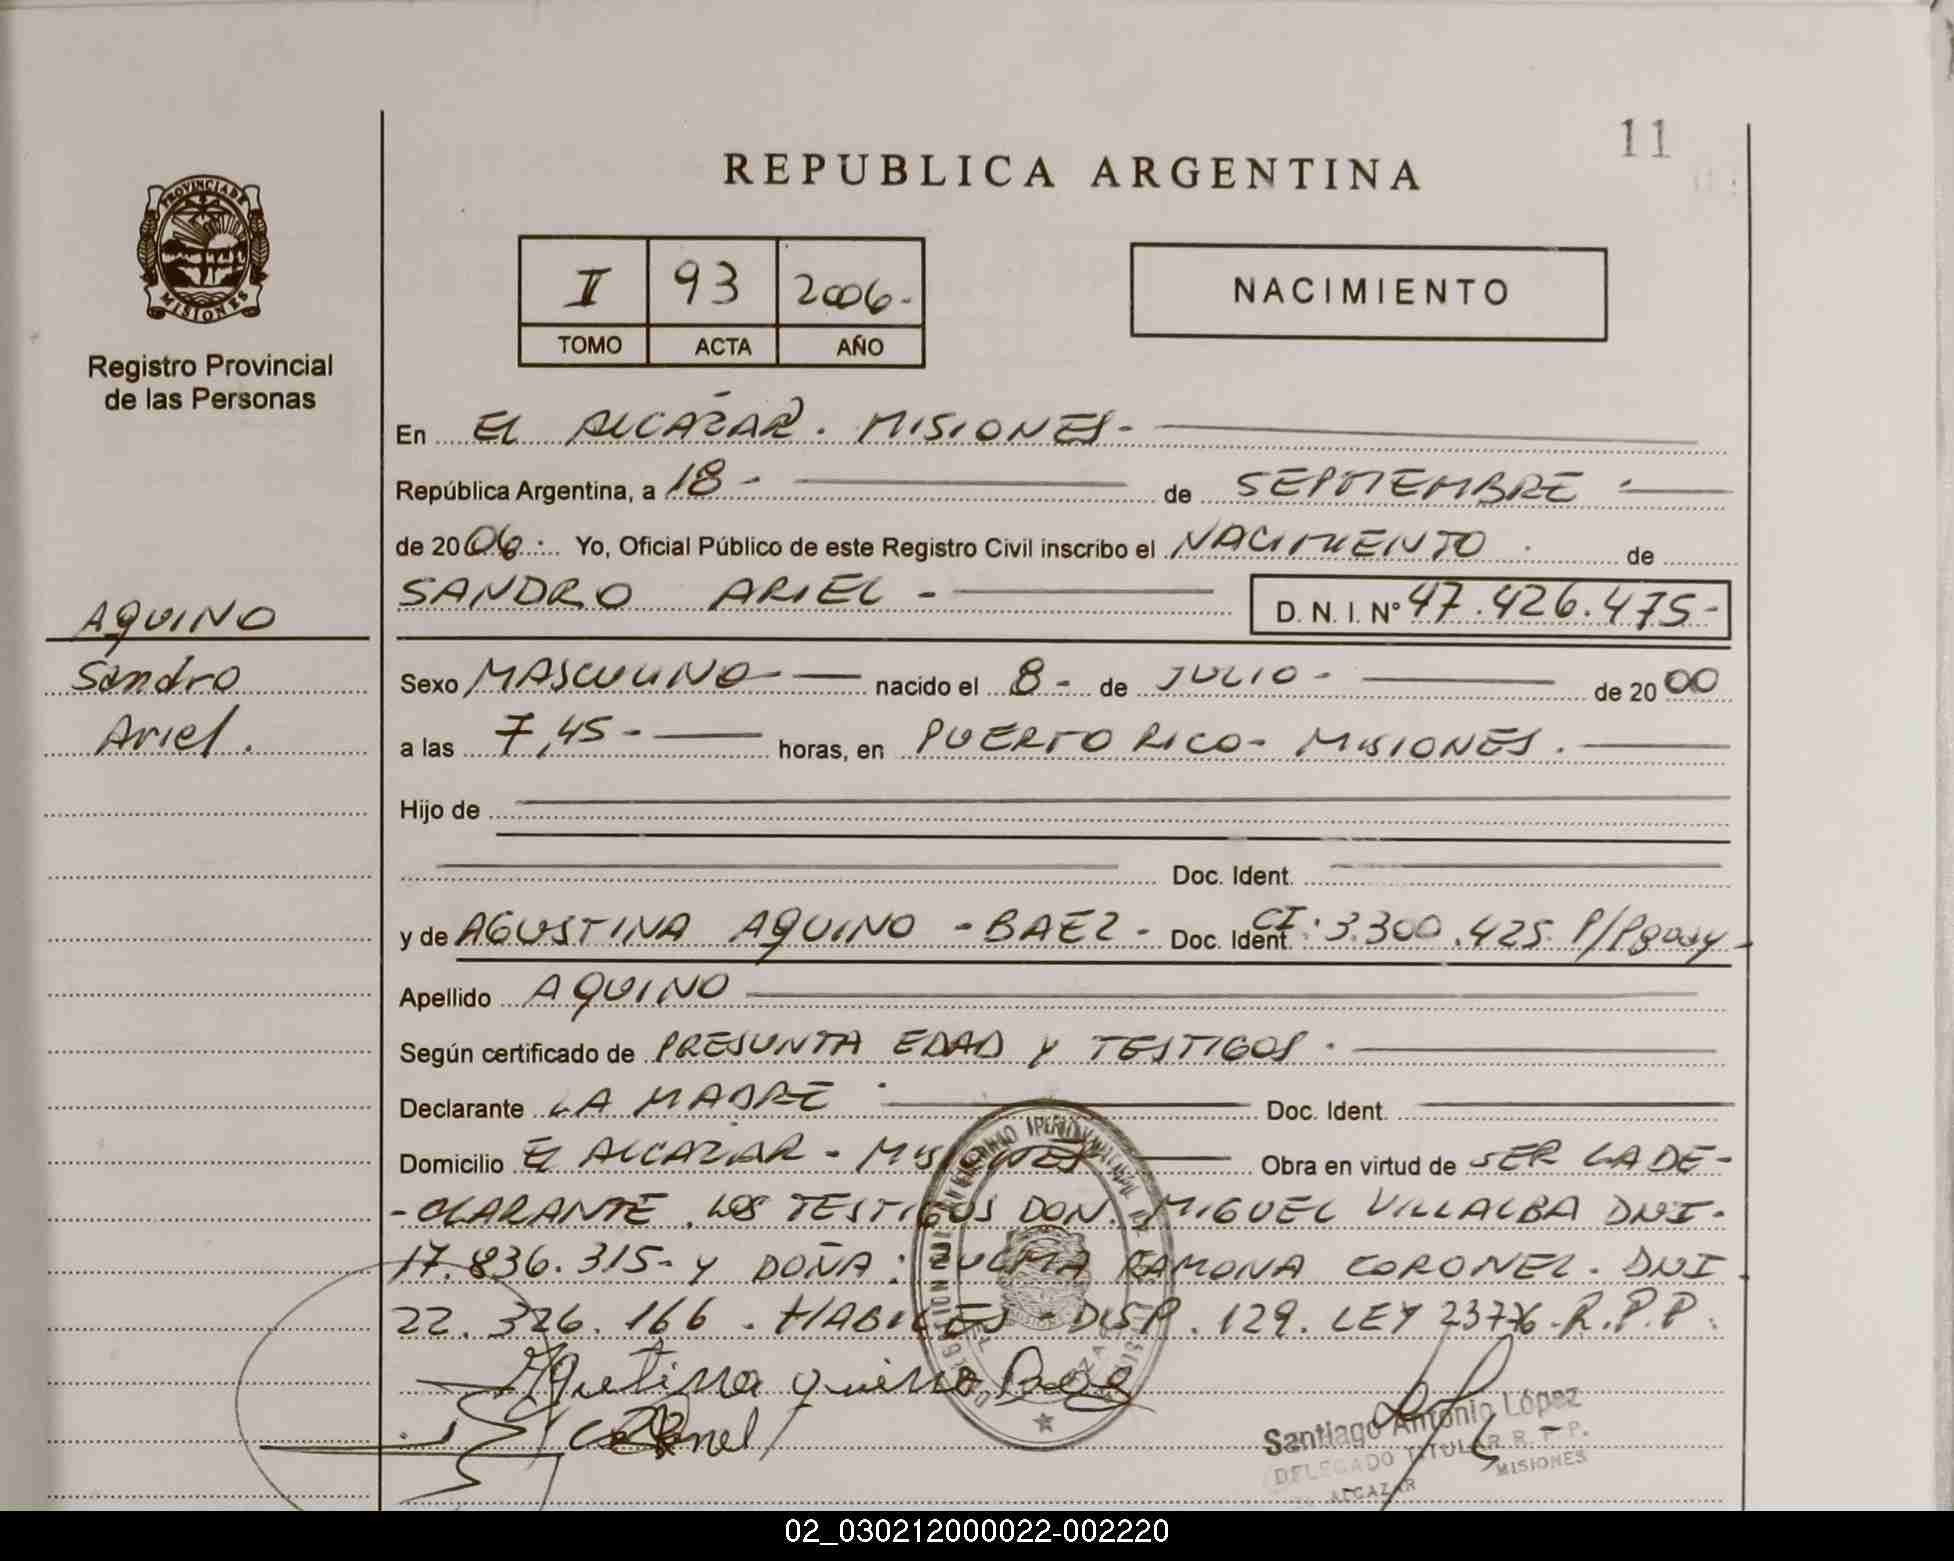 11
REPUBLICA ARGENTINA
PROVINCIA DE
MISIONES
Registro Provincial
de las Personas
I 93 2006-
TOMO ACTA AÑO
NACIMIENTO
En EL ALCAZAR. MISIONES-
República Argentina, a 18- de SEPTIEMBRE
de 2006. Yo, Oficial Público de este Registro Civil inscribo el NACIMIENTO. de
SANDRO ARIEL - D. N. I. Nº 47.426.475-
AQUINO
Sandro
Ariel.
Sexo MASCULINO nacido el 8- de JULIO- de 2000
a las 7,45- horas, en PUERTO RICO- MISIONES.
Hijo de
Doc. Ident.
y de AGUSTINA AQUINO - BAEZ - Doc. Ident. CI: 3.300.425 P/Pguay-
Apellido AQUINO
Según certificado de PRESUNTA EDAD Y TESTIGOS.
Declarante LA MADRE Doc. Ident.
Domicilio EL ALCAZAR - MISIONES Obra en virtud de SER LA DE-
-CLARANTE. LOS TESTIGOS DON. MIGUEL VILLALBA DNI.
17.836.315- Y DOÑA: ZULMA RAMONA CORONEL. DNI
22.326.166. HABILES - DISP. 129. LEY R.P.P.
Santiago Antonio López
DELEGADO TITULAR R. P. P.
ALCAZAR MISIONES
02_030212000022-002220